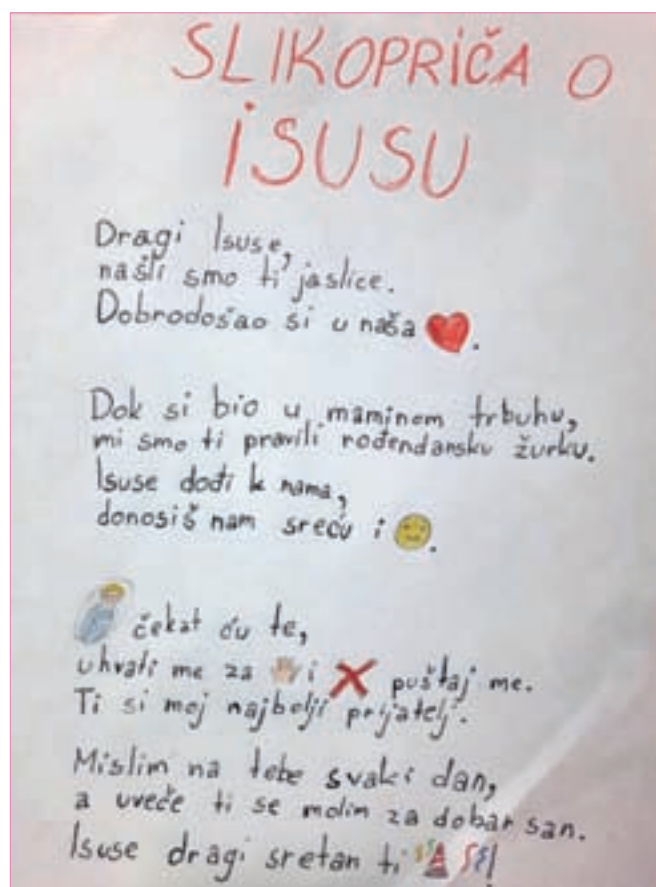 SLIKOPRIČA O
ISUSU
Dragi Isuse,
našli smo ti jaslice.
Dobrodošao si u naša .
Dok si bio u maminom trbuhu,
mi smo ti pravili rođendansku žurku.
Isuse dođi k nama,
donosiš nam sreću i .
čekat ću te,
uhvati me za i puštaj me.
Ti si moj najbolji prijatelj.
Mislim na tebe svaki dan,
a uveče ti se molim za dobar san.
Isuse dragi sretan ti !